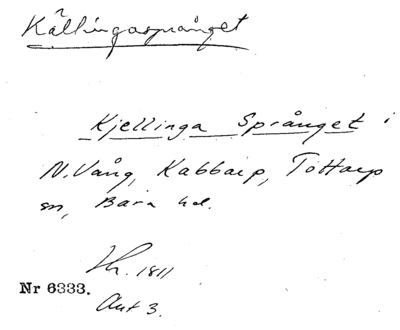 Källingasprånget
Kjellinga Språnget i
N. Vång, Kabbarp, Tottarp
sn, Bara hd.
Th. 1811
Nr 6333.
Akt 3.